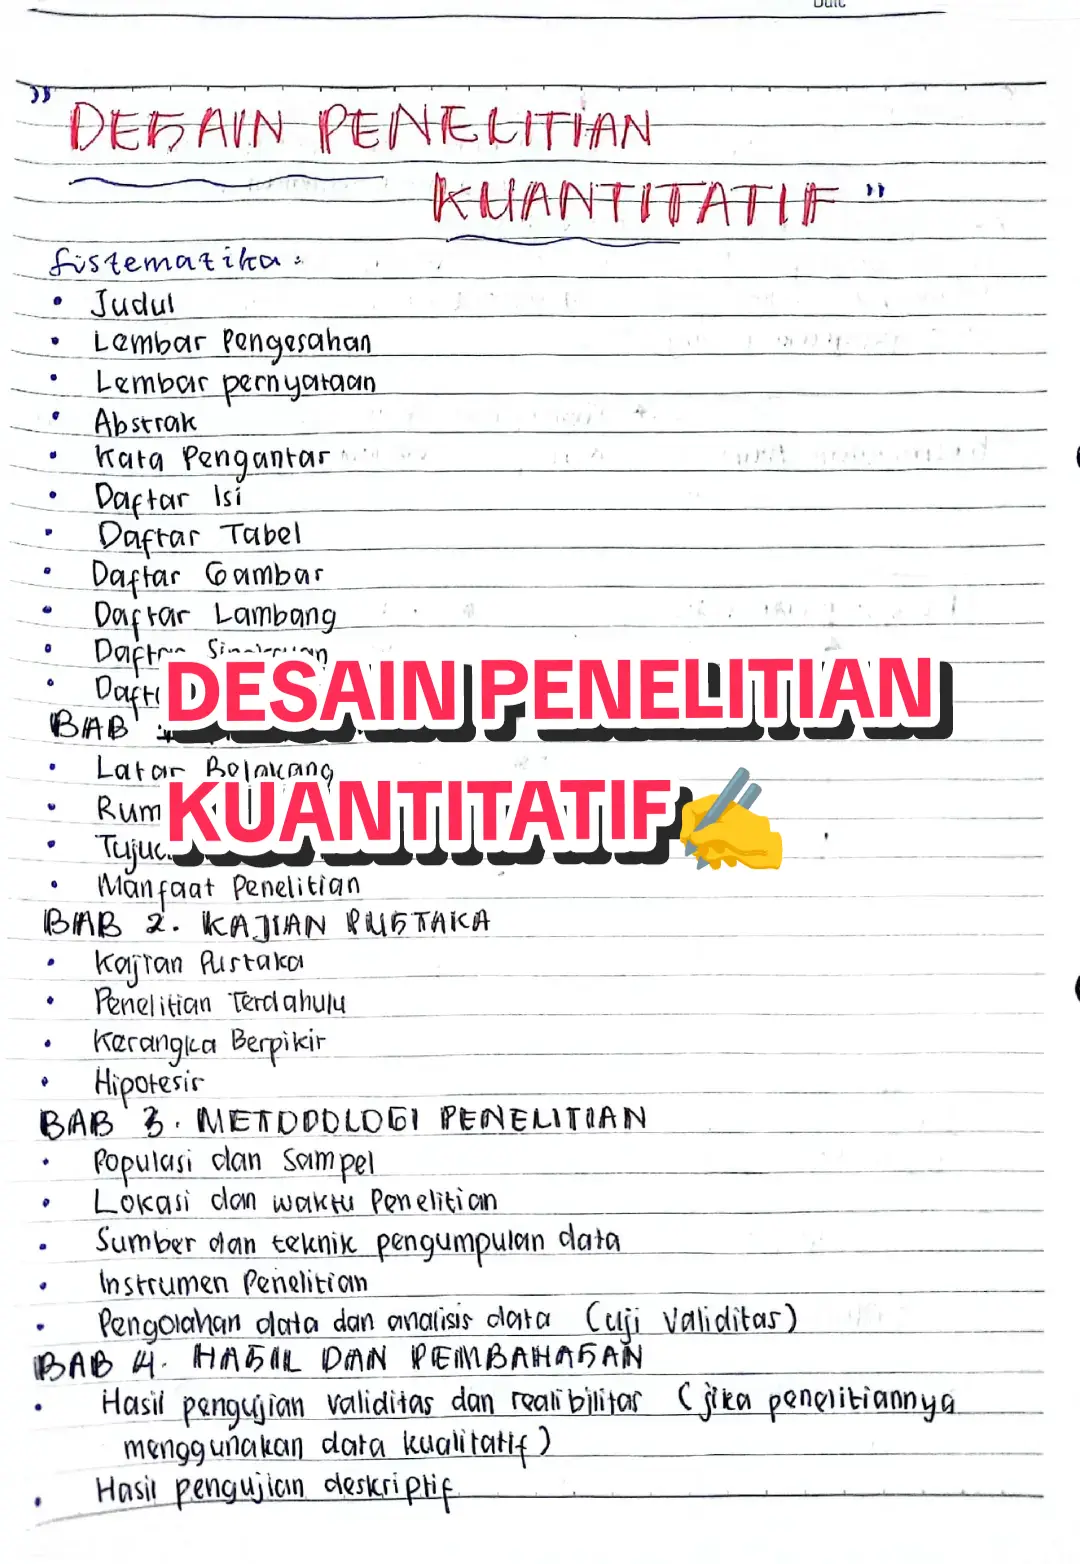 Date
" DESAIN PENELITIAN
KUANTITATIF "
Sistematika :
• Judul
• Lembar Pengesahan
• Lembar pernyataan
• Abstrak
• Kata Pengantar
• Daftar Isi
• Daftar Tabel
• Daftar Gambar
• Daftar Lambang
• Daftar Singkatan
DESAIN PENELITIAN
BAB
• Latar Belakang
KUANTITATIF✍
• Manfaat Penelitian
BAB 2. KAJIAN PUSTAKA
• Kajian Pustaka
• Penelitian Terdahulu
• Kerangka Berpikir
• Hipotesis
BAB 3. METODOLOGI PENELITIAN
• Populasi dan Sampel
• Lokasi dan waktu Penelitian
• Sumber dan teknik pengumpulan data
• Instrumen Penelitian
• Pengolahan data dan analisis data (uji Validitas)
BAB 4. HASIL DAN PEMBAHASAN
• Hasil pengujian validitas dan realibilitas (jika penelitiannya
menggunakan data kualitatif)
• Hasil pengujian deskriptif